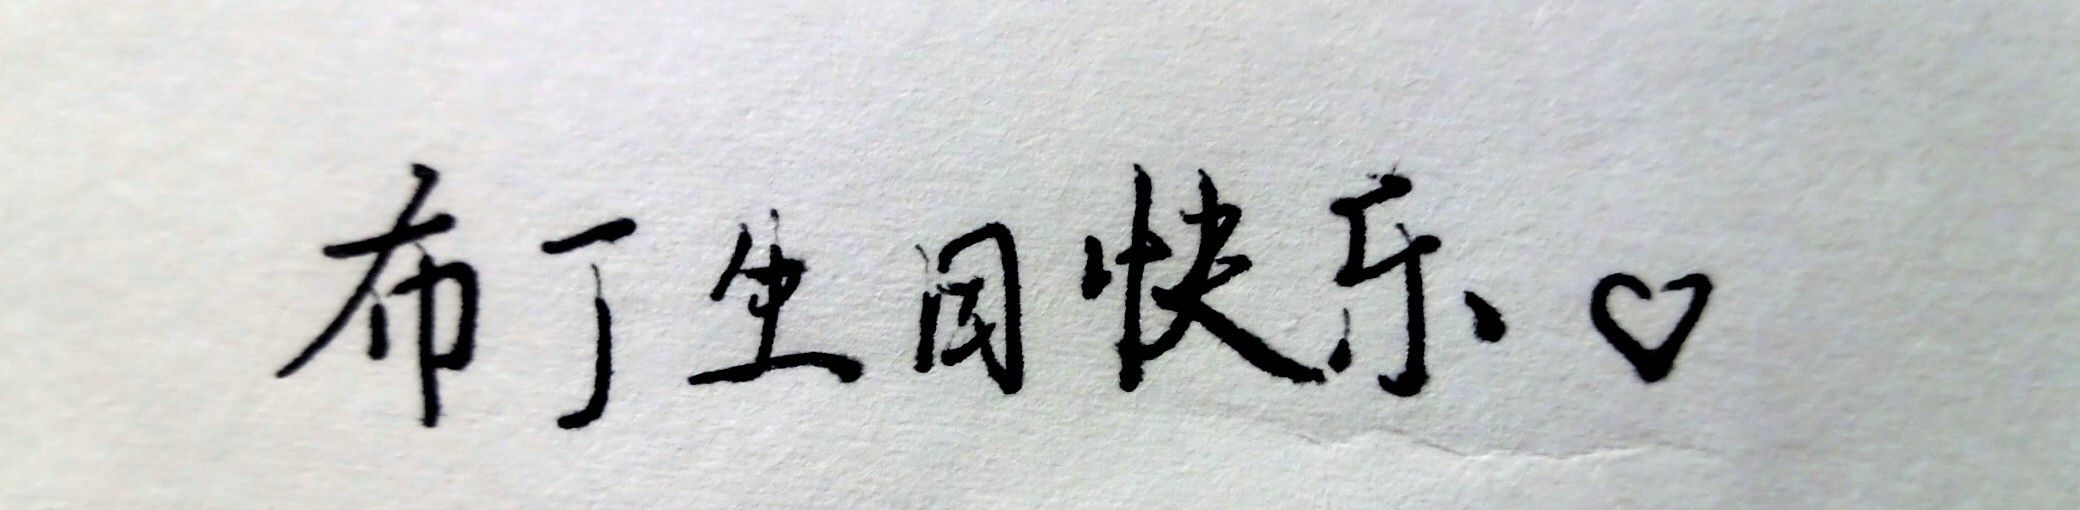 布丁生日快乐♡